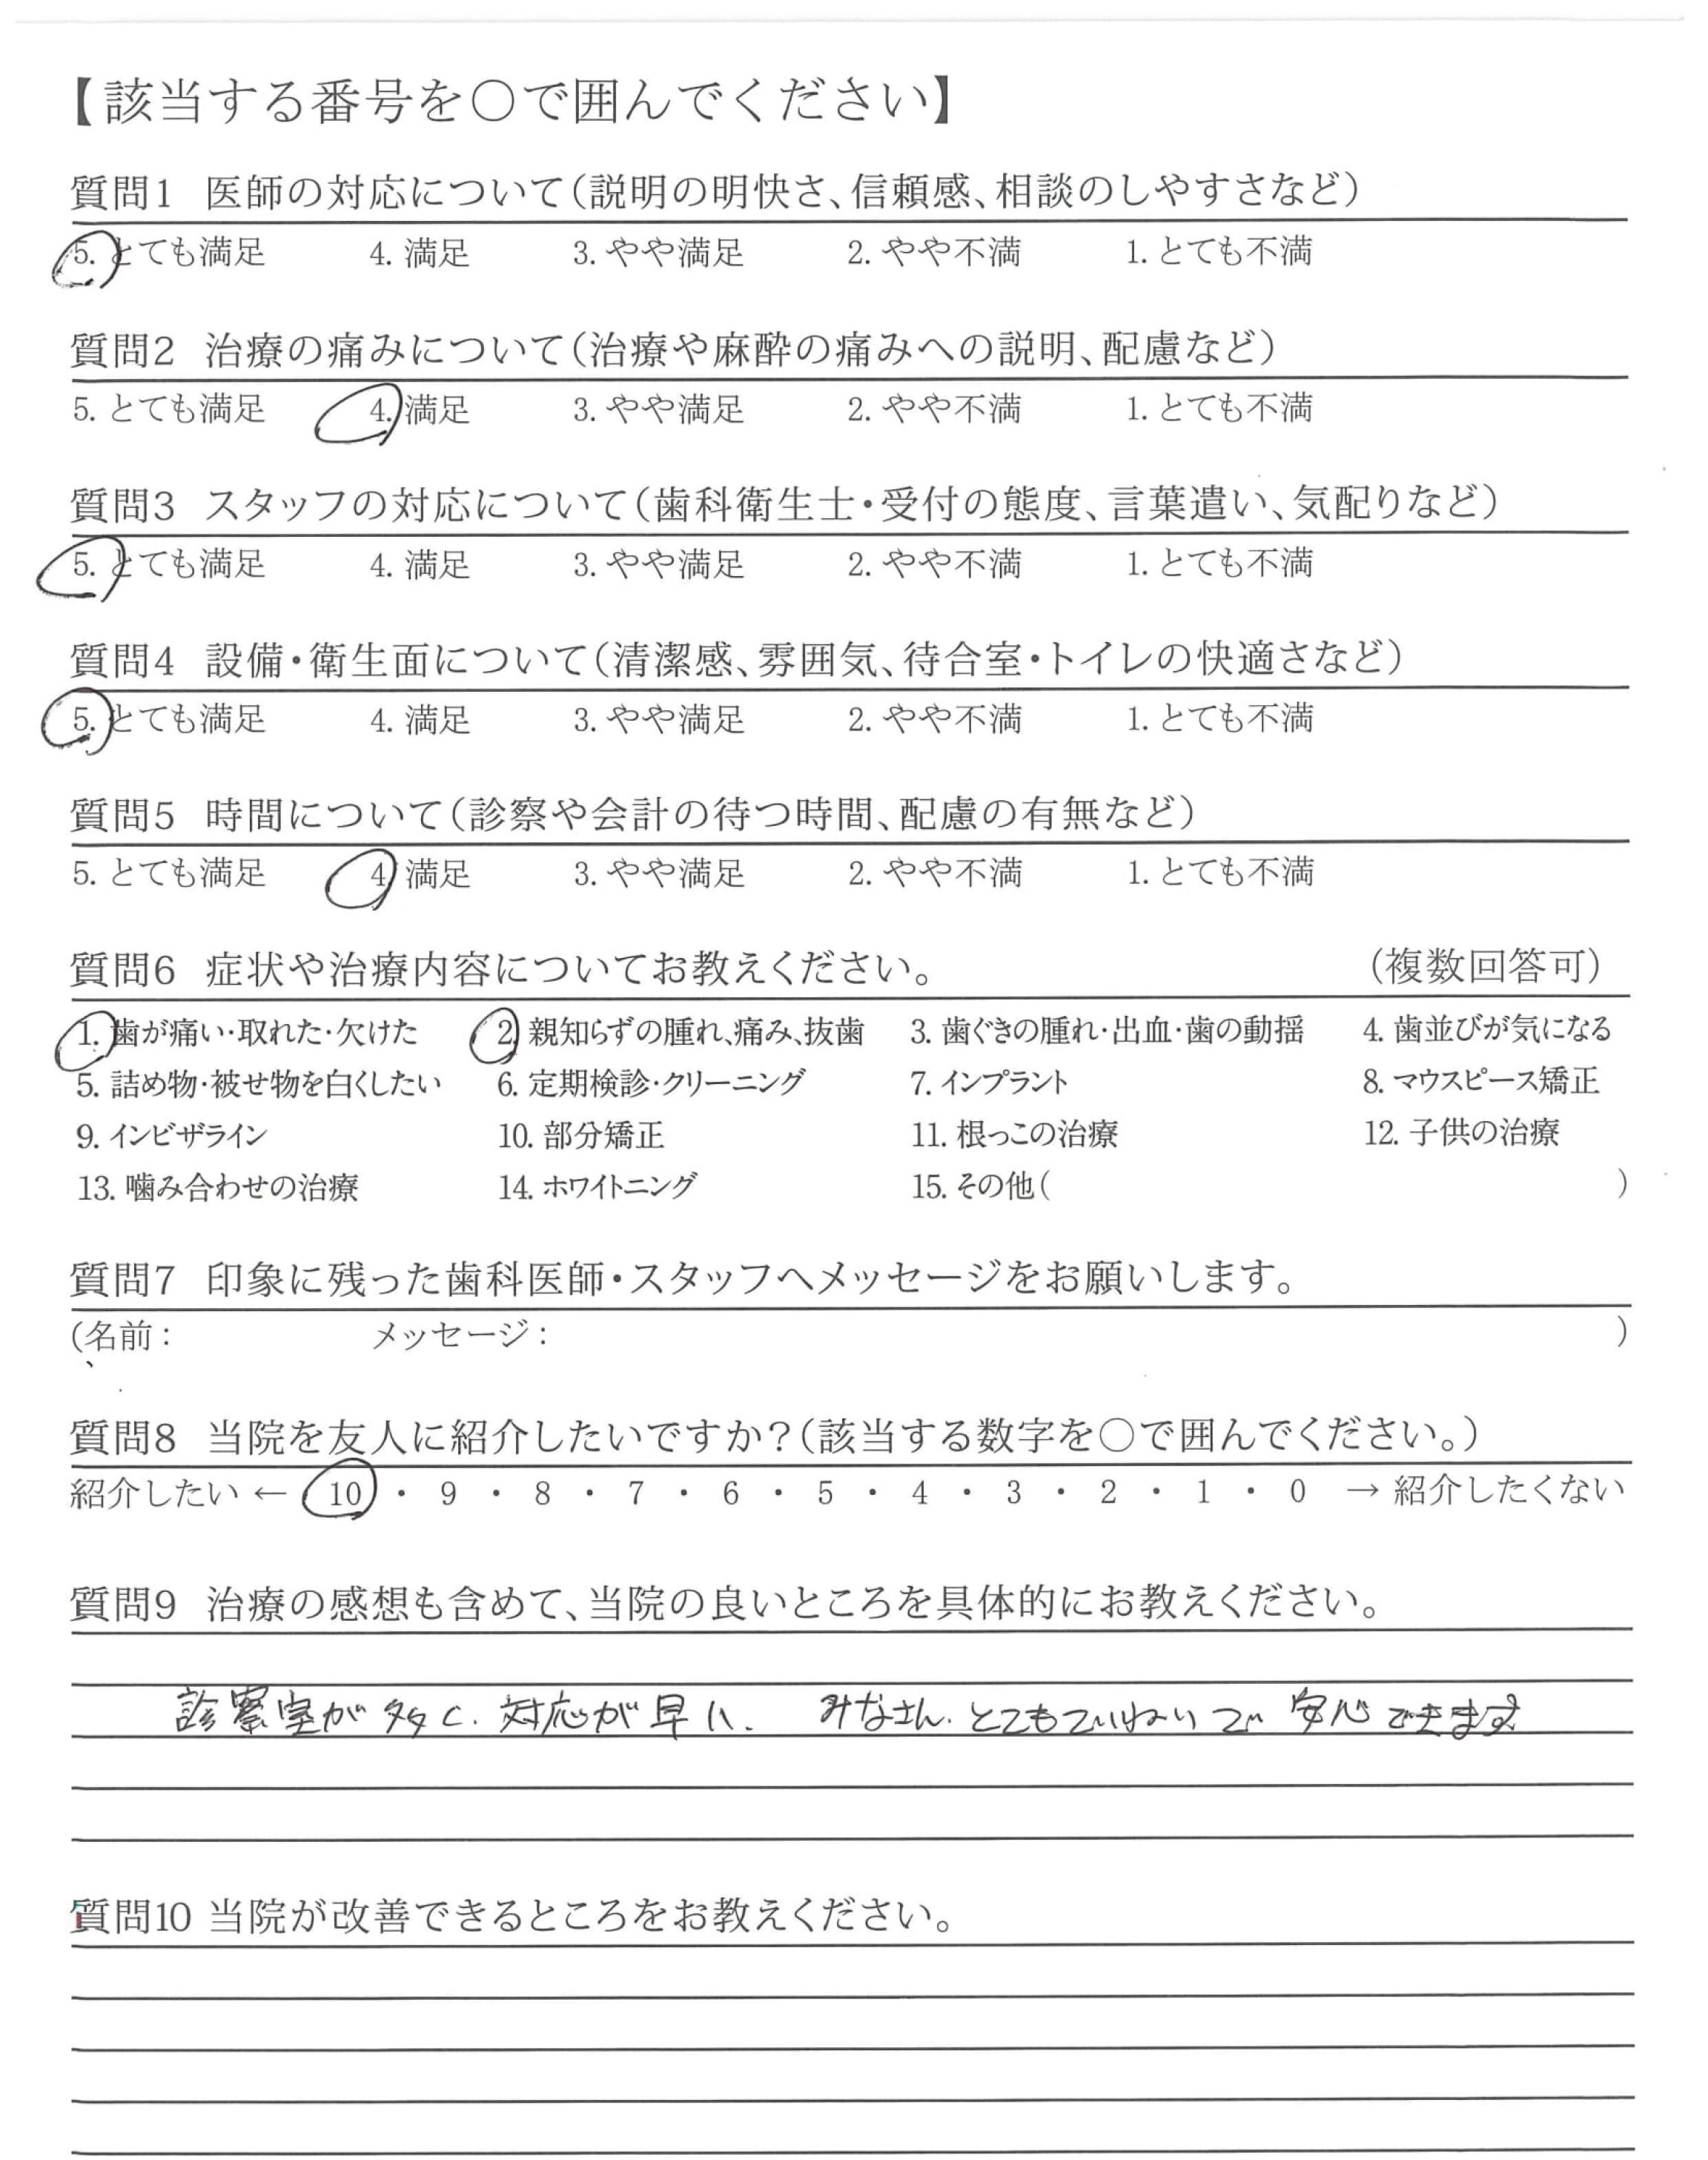 【該当する番号を○で囲んでください】
質問1 医師の対応について(説明の明快さ、信頼感、相談のしやすさなど)
5. とても満足 4. 満足 3. やや満足 2. やや不満 1. とても不満
質問2 治療の痛みについて(治療や麻酔の痛みへの説明、配慮など)
5. とても満足 4. 満足 3. やや満足 2. やや不満 1. とても不満
質問3 スタッフの対応について(歯科衛生士・受付の態度、言葉遣い、気配りなど)
5. とても満足 4. 満足 3. やや満足 2. やや不満 1. とても不満
質問4 設備・衛生面について(清潔感、雰囲気、待合室・トイレの快適さなど)
5. とても満足 4. 満足 3. やや満足 2. やや不満 1. とても不満
質問5 時間について(診察や会計の待つ時間、配慮の有無など)
5. とても満足 4. 満足 3. やや満足 2. やや不満 1. とても不満
質問6 症状や治療内容についてお教えください。 (複数回答可)
1. 歯が痛い・取れた・欠けた 2. 親知らずの腫れ、痛み、抜歯 3. 歯ぐきの腫れ・出血・歯の動揺 4. 歯並びが気になる
5. 詰め物・被せ物を白くしたい 6. 定期検診・クリーニング 7. インプラント 8. マウスピース矯正
9. インビザライン 10. 部分矯正 11. 根っこの治療 12. 子供の治療
13. 噛み合わせの治療 14. ホワイトニング 15. その他( )
質問7 印象に残った歯科医師・スタッフへメッセージをお願いします。
(名前: メッセージ: )
質問8 当院を友人に紹介したいですか?(該当する数字を○で囲んでください。)
紹介したい ← 10 ・ 9 ・ 8 ・ 7 ・ 6 ・ 5 ・ 4 ・ 3 ・ 2 ・ 1 ・ 0 → 紹介したくない
質問9 治療の感想も含めて、当院の良いところを具体的にお教えください。
診察室が多く、対応が早い、みなさん、とてもていねいで安心できます
質問10 当院が改善できるところをお教えください。